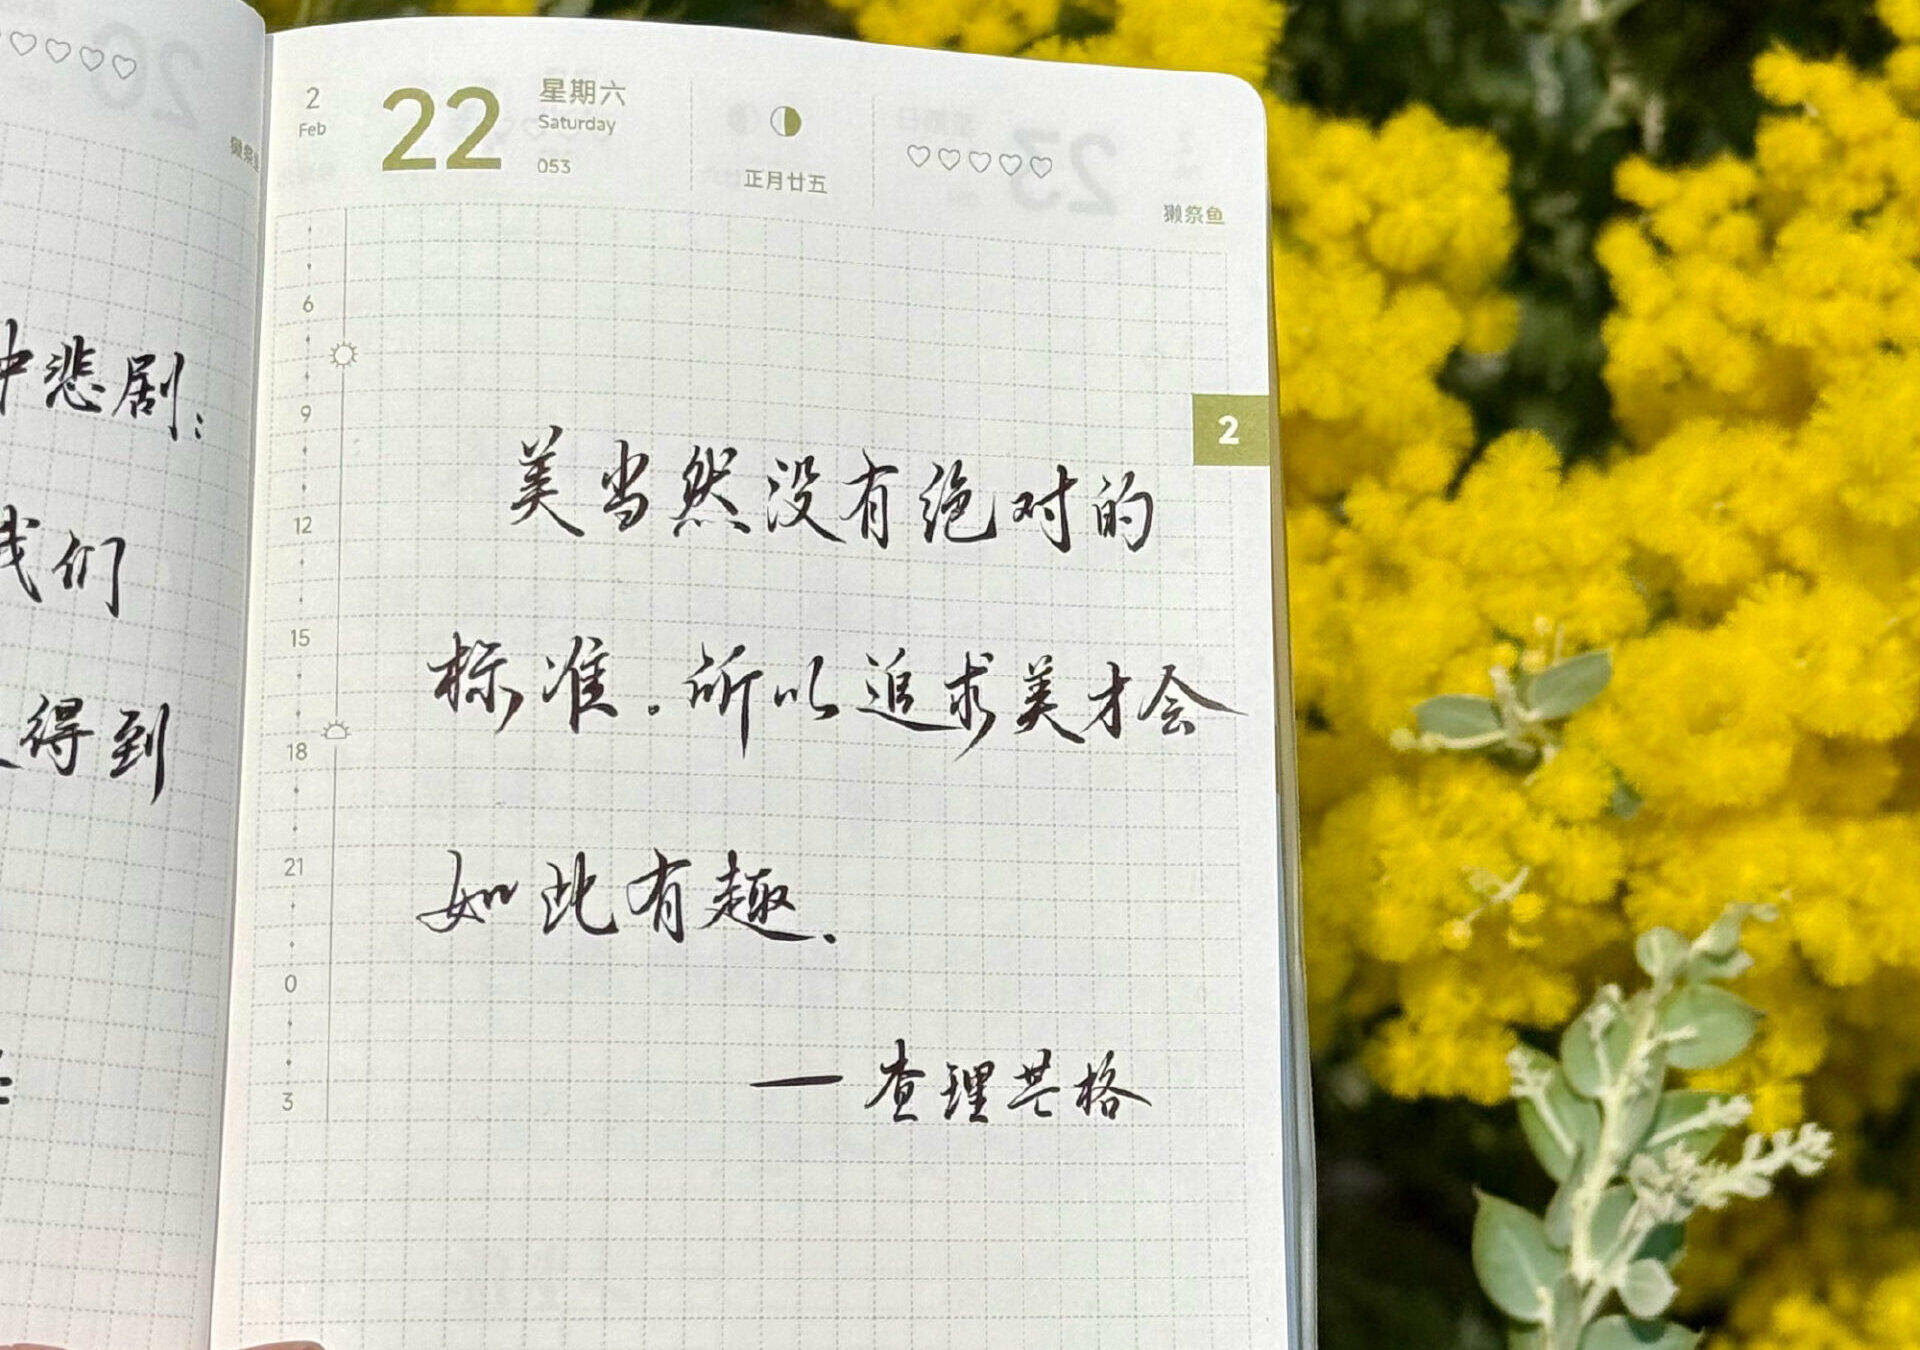 獭祭鱼
中悲剧：
我们
得到
2
Feb
22
星期六
Saturday
053
正月廿五
獭祭鱼
6
9
12
15
18
21
0
3
2
美当然没有绝对的
标准.所以追求美才会
如此有趣.
—查理芒格